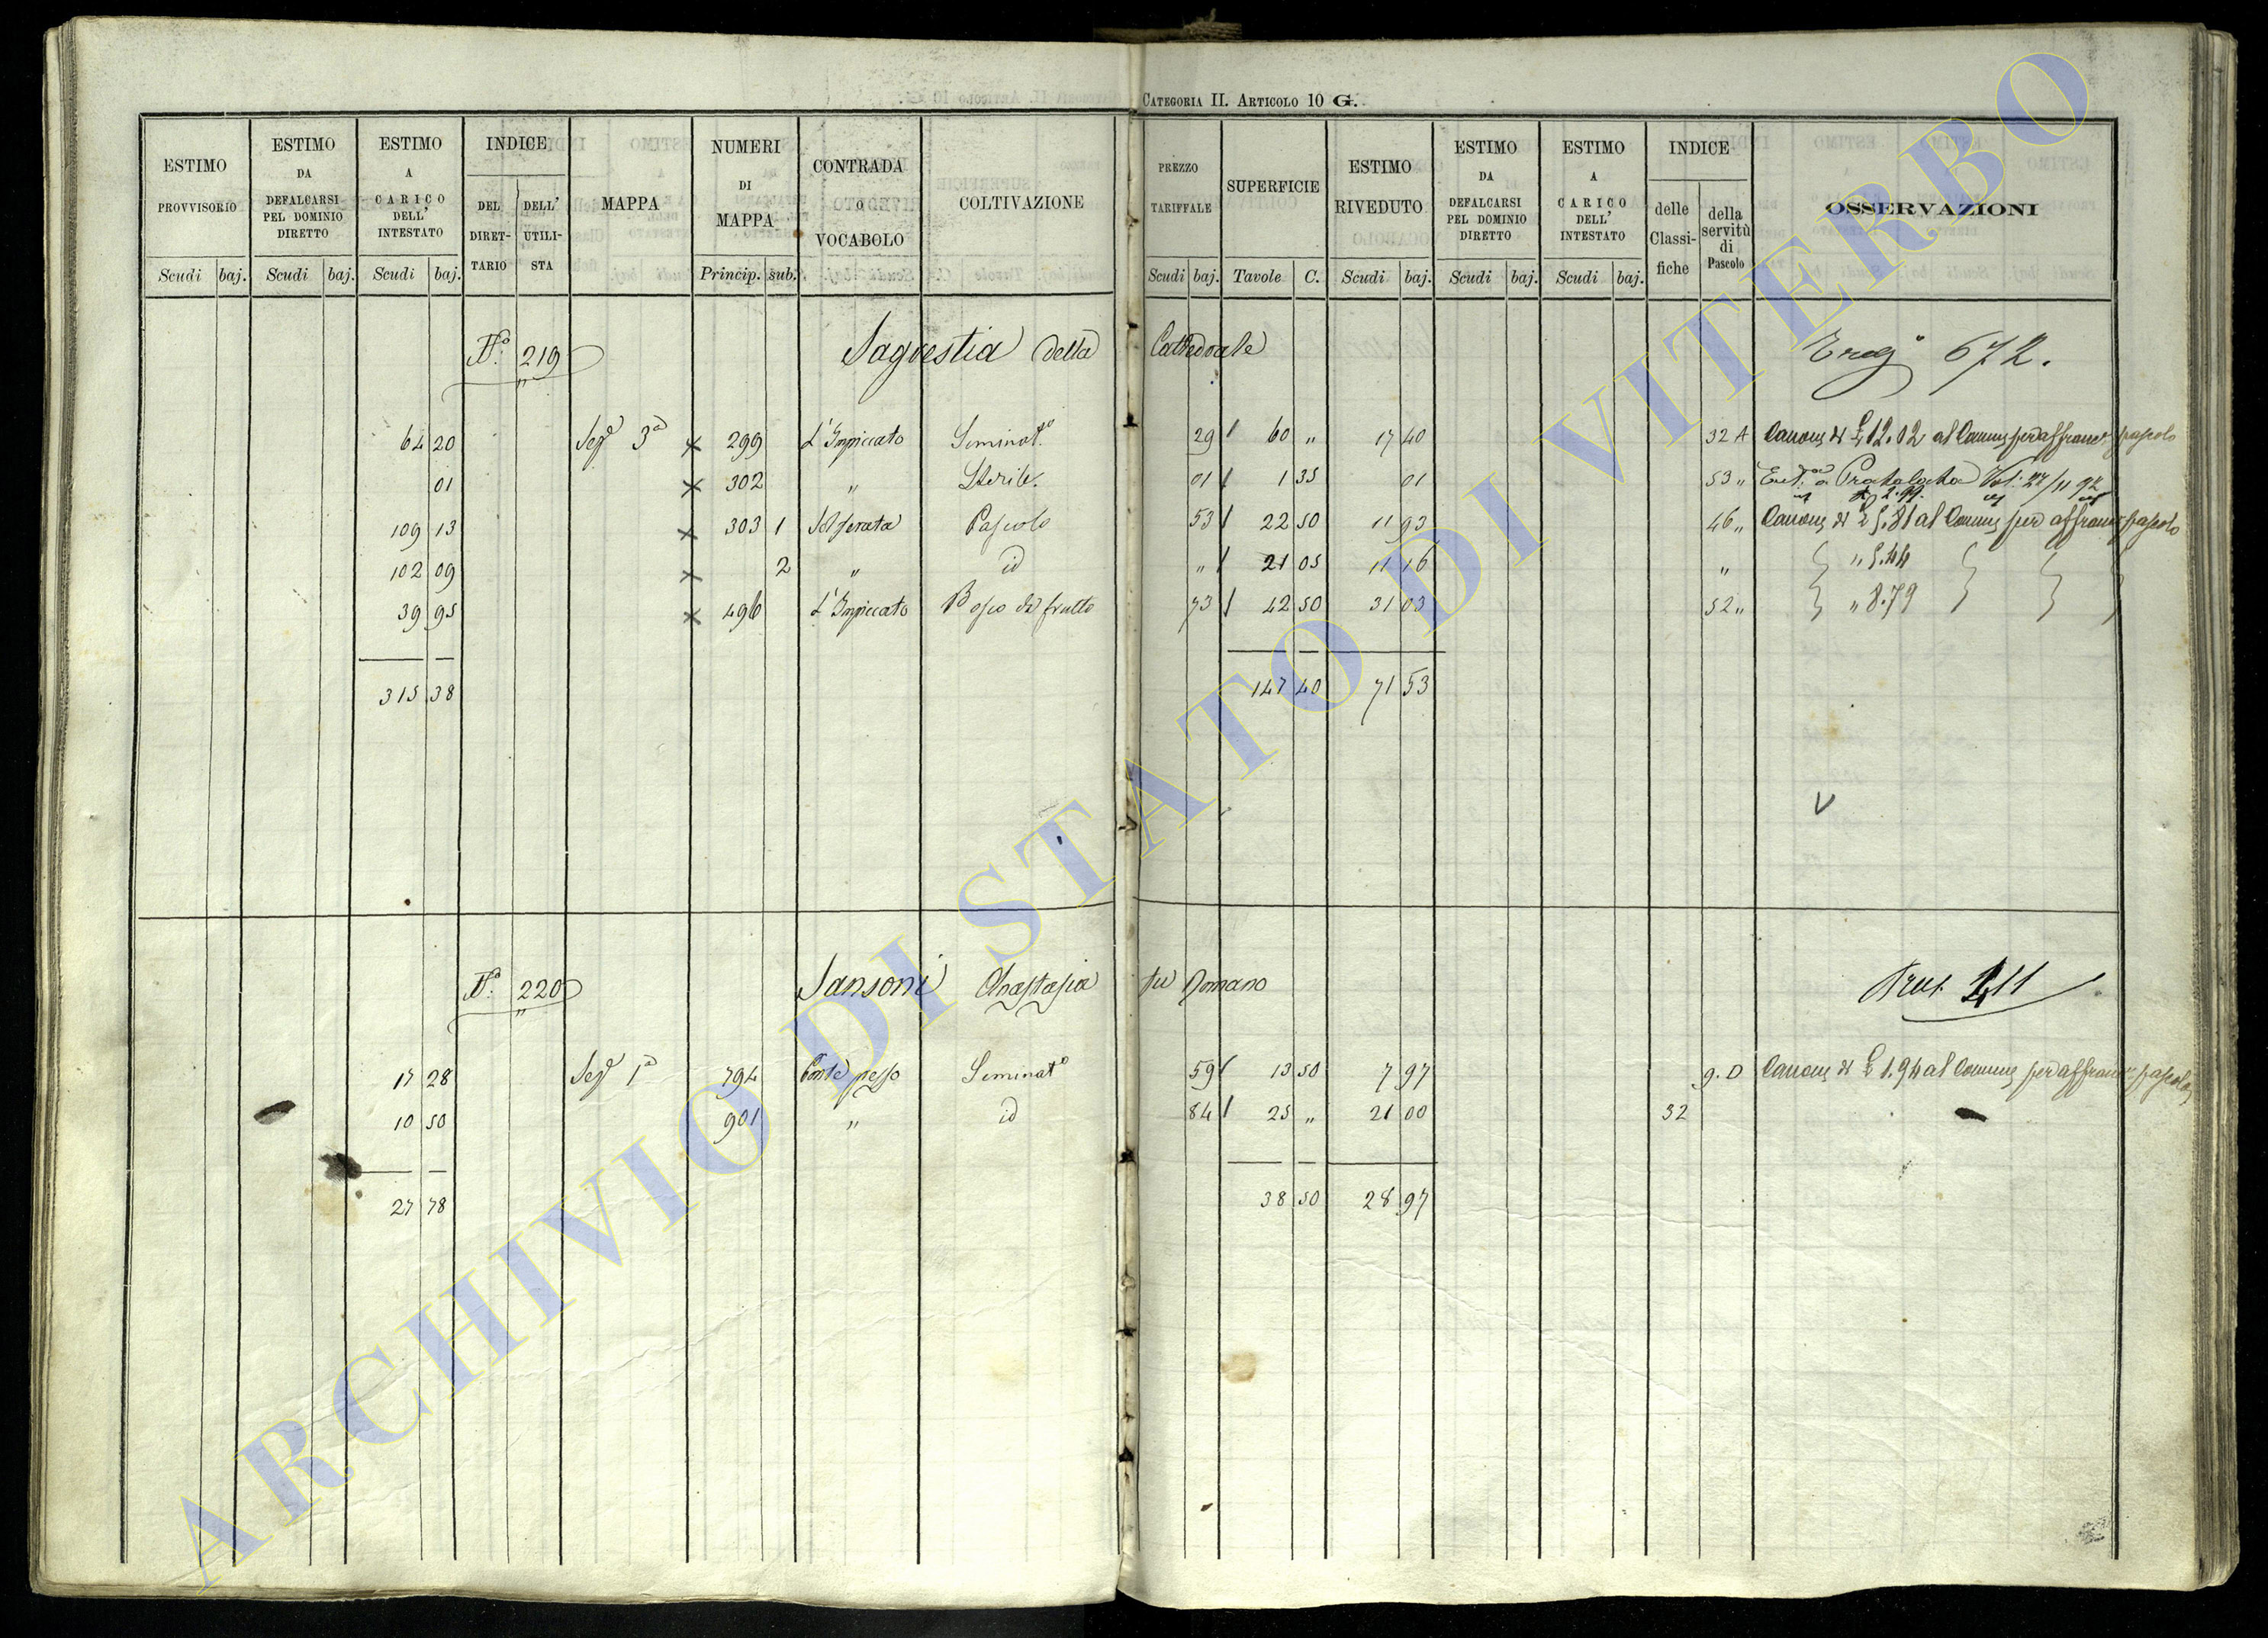 CATEGORIA II. ARTICOLO 10 G.
ESTIMO PROVVISORIO Scudi baj.
ESTIMO DA DEFALCARSI PEL DOMINIO DIRETTO Scudi baj.
ESTIMO A CARICO DELL' INTESTATO Scudi baj.
INDICE DEL DIRET-TARIO DELL' UTILI-STA
MAPPA
NUMERI DI MAPPA Princip. sub.
CONTRADA O VOCABOLO
COLTIVAZIONE
PREZZO TARIFFALE Scudi baj.
SUPERFICIE Tavole C.
ESTIMO RIVEDUTO Scudi baj.
ESTIMO DA DEFALCARSI PEL DOMINIO DIRETTO Scudi baj.
ESTIMO A CARICO DELL' INTESTATO Scudi baj.
INDICE delle Classi-fiche della servitù di Pascolo
OSSERVAZIONI
N.º 219 Sagrestia della Cattedrale 672.
64 20 Sezº 3ª 299 L'Impiccato Seminatº 29 60 " 17 40 32 A Canone di £ 12.02 al Comune per affranc. pascolo
01 302 " Sterile. 01 1 35 01 53 "
109 13 303 1 Pascolo 53 22 50 11 93 46 " Canone di £ 5.81 al Comune per affranc. pascolo
102 09 2 " id " 21 05 11 16 " " 5.44
39 95 496 L'Impiccato Bosco da frutto 73 42 50 31 03 52 " " 8.79
315 38 147 40 71 53
V
N.º 220 Sansoni Anastasia fu Romano
17 28 Sezº 1ª 794 Ponte pesso Seminatº 59 13 50 7 97 9. D Canone di £ 1.94 al Comune per affranc. pascolo
10 50 901 " id 84 25 " 21 00 32
27 78 38 50 28 97
ARCHIVIO DI STATO DI VITERBO